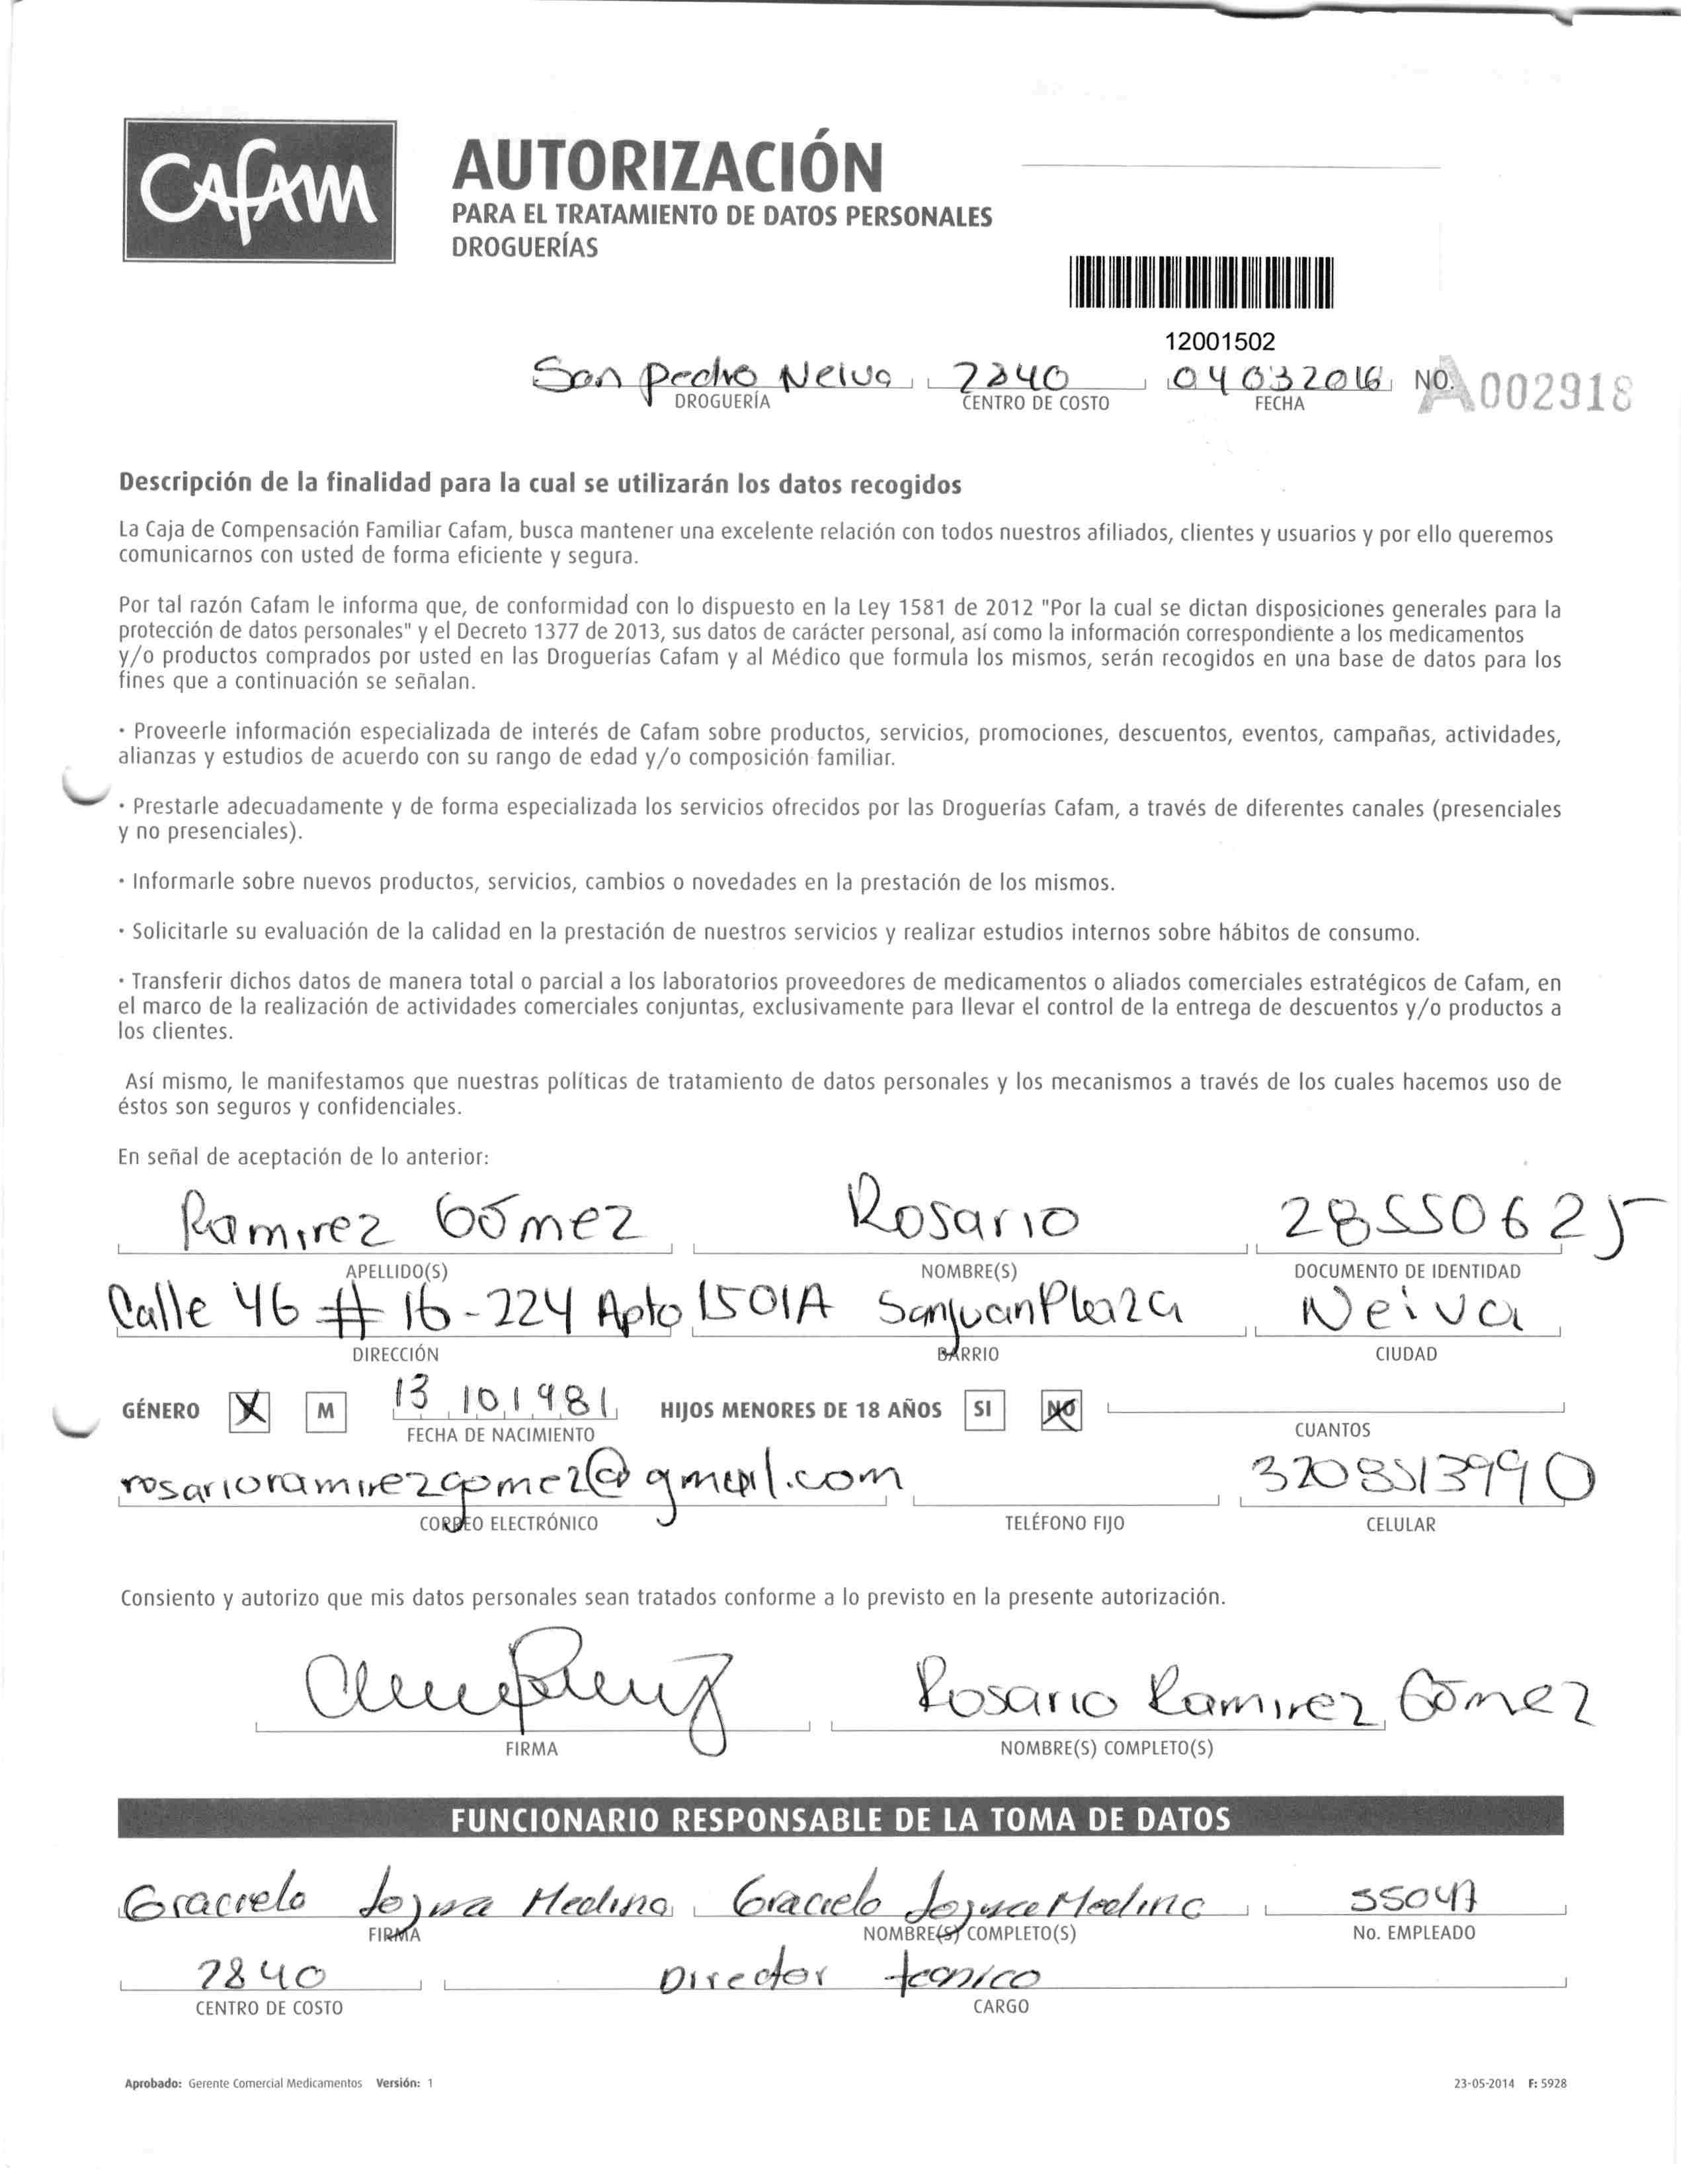 CAFAM
AUTORIZACIÓN
PARA EL TRATAMIENTO DE DATOS PERSONALES
DROGUERÍAS
12001502
San pedro Neiva 7840 04032016 NO. A002918
DROGUERÍA CENTRO DE COSTO FECHA
Descripción de la finalidad para la cual se utilizarán los datos recogidos
La Caja de Compensación Familiar Cafam, busca mantener una excelente relación con todos nuestros afiliados, clientes y usuarios y por ello queremos
comunicarnos con usted de forma eficiente y segura.
Por tal razón Cafam le informa que, de conformidad con lo dispuesto en la Ley 1581 de 2012 "Por la cual se dictan disposiciones generales para la
protección de datos personales" y el Decreto 1377 de 2013, sus datos de carácter personal, así como la información correspondiente a los medicamentos
y/o productos comprados por usted en las Droguerías Cafam y al Médico que formula los mismos, serán recogidos en una base de datos para los
fines que a continuación se señalan.
· Proveerle información especializada de interés de Cafam sobre productos, servicios, promociones, descuentos, eventos, campañas, actividades,
alianzas y estudios de acuerdo con su rango de edad y/o composición familiar.
· Prestarle adecuadamente y de forma especializada los servicios ofrecidos por las Droguerías Cafam, a través de diferentes canales (presenciales
y no presenciales).
· Informarle sobre nuevos productos, servicios, cambios o novedades en la prestación de los mismos.
· Solicitarle su evaluación de la calidad en la prestación de nuestros servicios y realizar estudios internos sobre hábitos de consumo.
· Transferir dichos datos de manera total o parcial a los laboratorios proveedores de medicamentos o aliados comerciales estratégicos de Cafam, en
el marco de la realización de actividades comerciales conjuntas, exclusivamente para llevar el control de la entrega de descuentos y/o productos a
los clientes.
Así mismo, le manifestamos que nuestras políticas de tratamiento de datos personales y los mecanismos a través de los cuales hacemos uso de
éstos son seguros y confidenciales.
En señal de aceptación de lo anterior:
Ramirez Gómez Rosario 28550625
APELLIDO(S) NOMBRE(S) DOCUMENTO DE IDENTIDAD
Calle 46 # 16-224 Apto 1501A SanJuanPlaza Neiva
DIRECCIÓN BARRIO CIUDAD
GÉNERO X M 13 10 1981 HIJOS MENORES DE 18 AÑOS SI NO
FECHA DE NACIMIENTO CUANTOS
rosarioramirezgomez@gmail.com 3208513990
CORREO ELECTRÓNICO TELÉFONO FIJO CELULAR
Consiento y autorizo que mis datos personales sean tratados conforme a lo previsto en la presente autorización.
Rosario Ramirez Gómez
FIRMA NOMBRE(S) COMPLETO(S)
FUNCIONARIO RESPONSABLE DE LA TOMA DE DATOS
Graciela Medina Graciela Medina 55047
FIRMA NOMBRE(S) COMPLETO(S) No. EMPLEADO
7840 Director tecnico
CENTRO DE COSTO CARGO
Aprobado: Gerente Comercial Medicamentos Versión: 1 23-05-2014 F: 5928